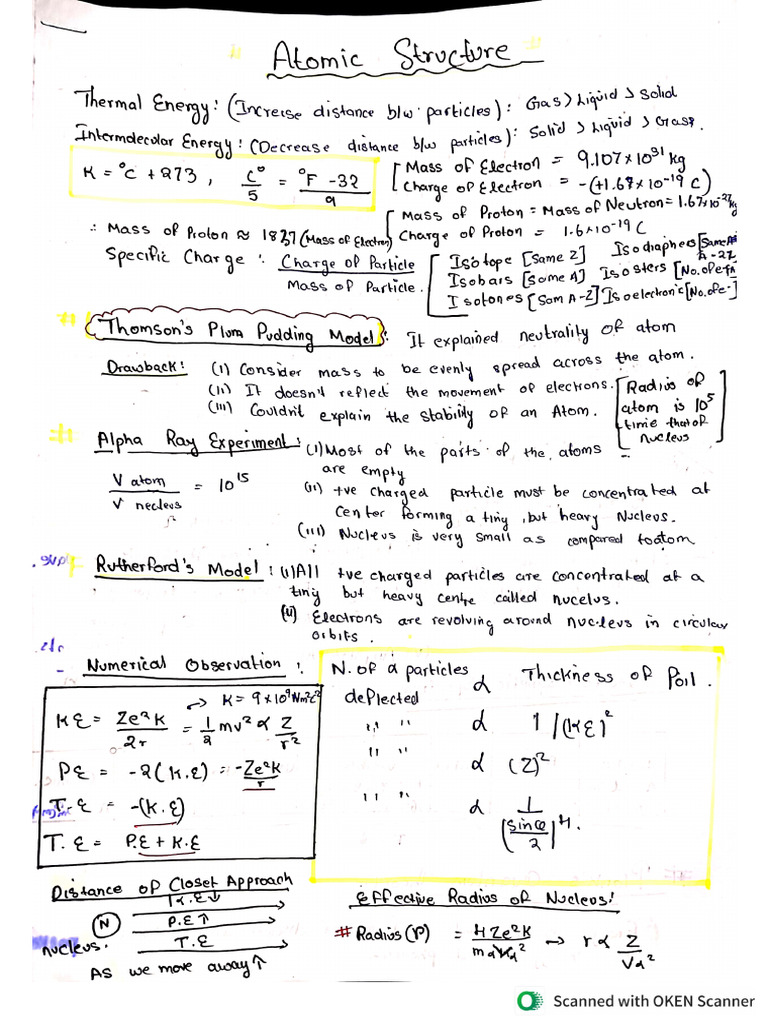 Atomic Structure
Thermal Energy: (Increise distance b/w particles): Gas > Liquid > Solid
Intermolecular Energy: (Decrease distance b/w particles): Solid > Liquid > Gas.
K = °C + 273, C°/5 = °F - 32/9
[Mass of Electron = 9.107 x 10^31 kg
Charge of Electron = -(+1.67 x 10^-19 C)
[Mass of Proton = Mass of Neutron = 1.67x10^-27 kg
∴ Mass of Proton ≈ 1837 (Mass of Electron) Charge of Proton = 1.6x10^-19 C
Specific Charge: Charge of Particle / Mass of Particle.
[Isotope [Same Z] Isodiaphers [Same A-2Z
Isobars [Same A] Isosters [No. of e-, A
Isotones [Sam A-Z] Isoelectronic [No. of e-]
# Thomson's Plum Pudding Model: It explained neutrality of atom
Drawback: (i) Consider mass to be evenly spread across the atom.
(ii) It doesn't reflect the movement of electrons.
(iii) Couldn't explain the stability of an Atom.
[Radius of
atom is 10^5
time that of
nucleus]
# Alpha Ray Experiment: (i) Most of the parts of the atoms
are empty
V atom / V necleus = 10^15
(ii) +ve charged particle must be concentrated at
center forming a tiny, but heavy Nucleus.
(iii) Nucleus is very small as compared to atom
Rutherford's Model: (i) All +ve charged particles are concentrated at a
tiny but heavy centre called nucelus.
(ii) Electrons are revolving around nucleus in circular
orbits.
Numerical Observation:
→ K = 9 x 10^9 Nm²C²
KE = Ze²K/2r = 1/2 mv² ∝ Z/r²
PE = -2(K.E) = -Ze²K/r
T.E = -(K.E)
T.E = P.E + K.E
N. of α particles ∝ Thickness of Foil.
deflected
" " ∝ 1/(KE)²
" " ∝ (Z)²
" " ∝ 1/(sinθ/2)^4.
Distance of Closet Approach
K.E↓
N P.E↑
nucleus. T.E
As we move away↑
Effective Radius of Nucleus:
# Radius (r) = 4Ze²K/mαVα² → r ∝ Z/Vα²
Scanned with OKEN Scanner